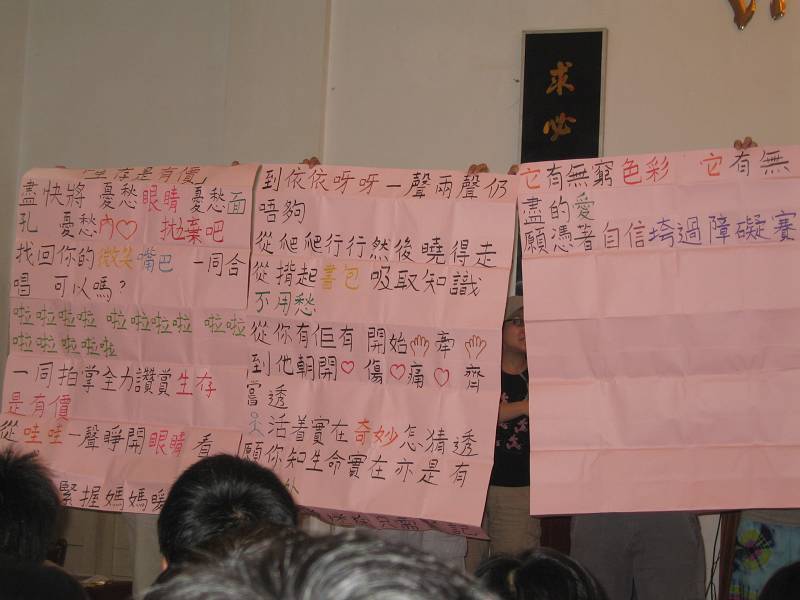 「生存是有價」
盡快將 憂愁眼睛 憂愁面
孔 憂愁內♡ 拋棄吧
找回你的微笑嘴巴 一同合
唱 可以嗎?
啦啦啦啦 啦啦啦啦 啦啦
啦啦啦啦啦
一同拍掌全力讚賞生存
是有價
從哇哇一聲睜開眼睛 看
緊握媽媽暖
到依依呀呀一聲兩聲仍
唔夠
從爬爬行行然後曉得走
從揹起書包 吸取知識
不用愁
從你有佢有 開始 牽
到他朝開♡傷♡痛♡齊
嘗透
活着實在奇妙怎猜透
願你知生命實在亦是有
它有無窮色彩 它有無
盡的愛
願憑著自信垮過障礙賽
求必